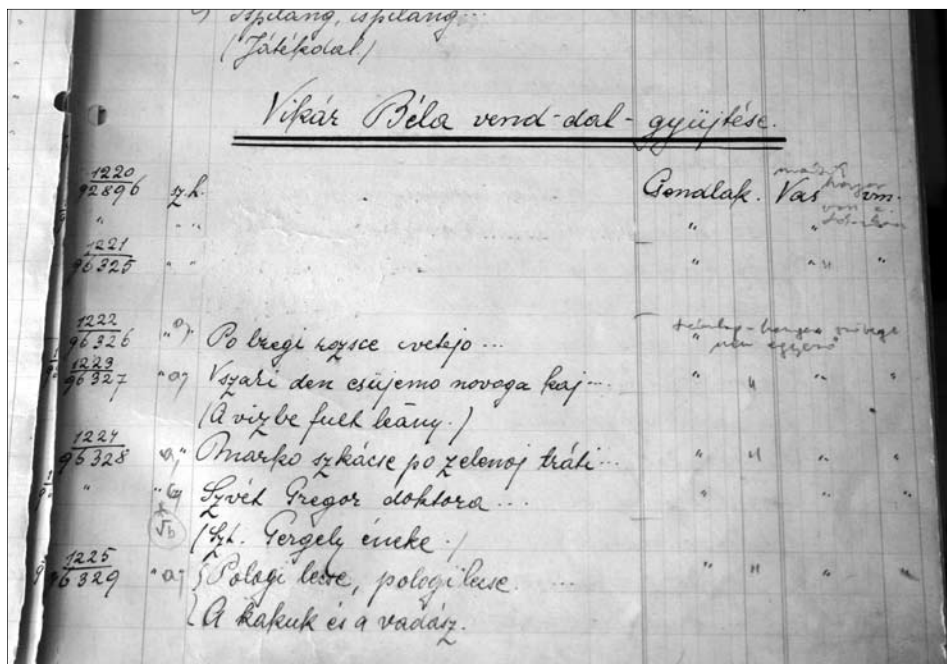 Ispiláng, ispiláng...
(Játékdal.)
Vikár Béla vend-dal-gyüjtése.
1220
92896 sz.h. Csendlak. Vas vm.
" " " " " "
1221
96325 " " " " "
1222
96326 " a) Po bregi rozsce cvetejo...
1223
96327 " a) Vszaki den csüjemo novoga kaj... " " " "
(A vizbe fult leány.)
1224
96328 a) " Marko szkácse po zelenoj tráti... " " " "
" " b) Szvét Gregor doktora... " " "
(Szt. Gergely éneke.)
1225
96329 " a) Pologi lecse, pologi lecse. ..... " " " "
A kakuk és a vadász.